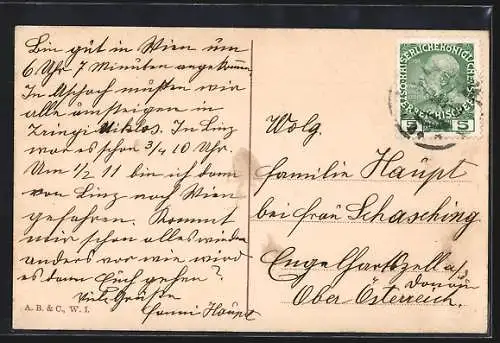 Bin gut in Wien um
6 Uhr 7 Minuten angekommen.
In Aschach mußten wir
alle aussteigen in
Miklos. In Linz
war es schon 3/4 10 Uhr.
Um 1/2 11 bin ich dann
von Linz nach Wien
gefahren. Kommt
mir schon alles wieder
anders vor wie wird
es dann Euch gehen?
Viele Grüße
Fanni Haupt
A. B. & C., W. I.
KAISERLICHE KÖNIGLICHE
5 5
Wolg.
Familie Haupt
bei Frau Schasching
Engelhartszell a/d.
Donau
Ober Österreich.